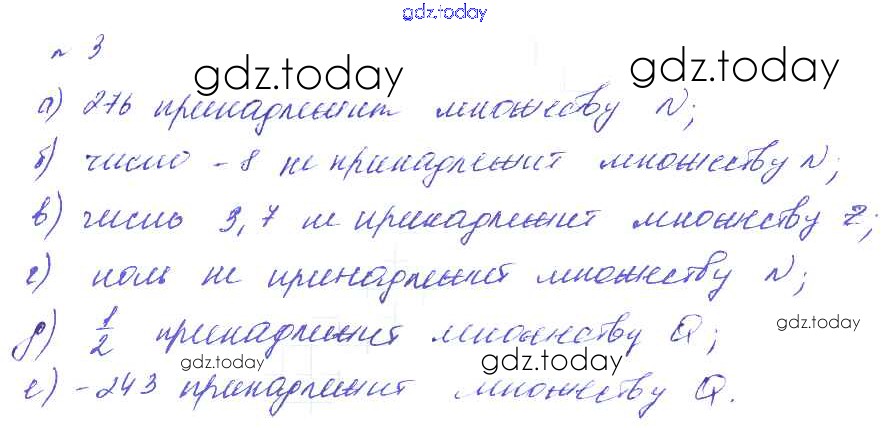 gdz.today
n 3
gdz.today
gdz.today
а) 276 принадлежит множеству N;
б) число -8 не принадлежит множеству N;
в) число 3,7 не принадлежит множеству Z;
г) ноль не принадлежит множеству N;
д) 1/2 принадлежит множеству Q;
gdz.today
gdz.today
gdz.today
е) -243 принадлежит множеству Q.